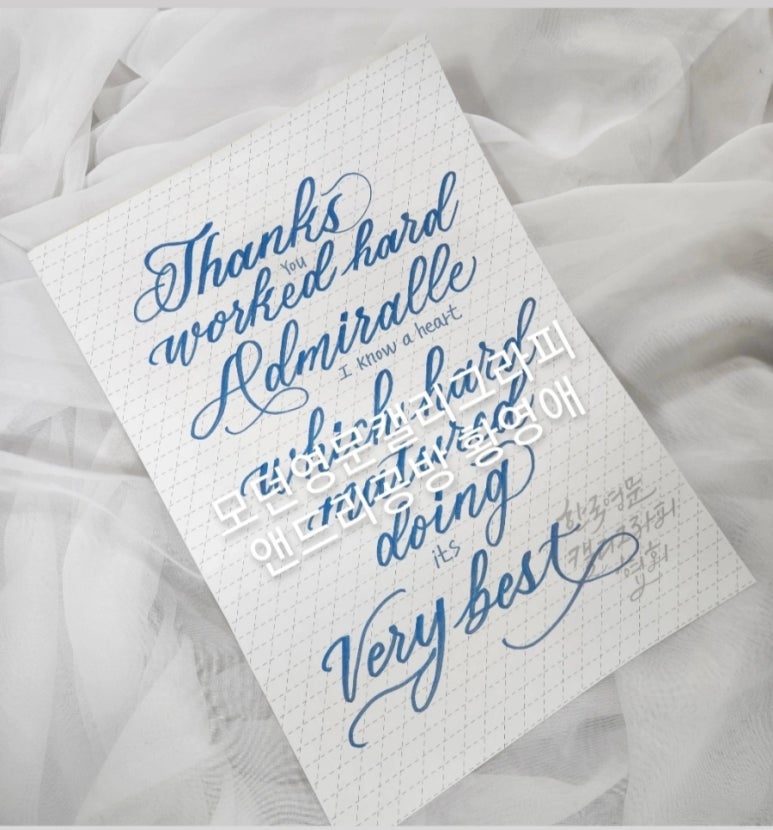 Thanks
You
worked hard
Admiralle
I know a heart
which hard
matured
doing
its
Very best
모던영문캘리그라피
앤드리공방 황영애
한국영문
캘리그라피
협회